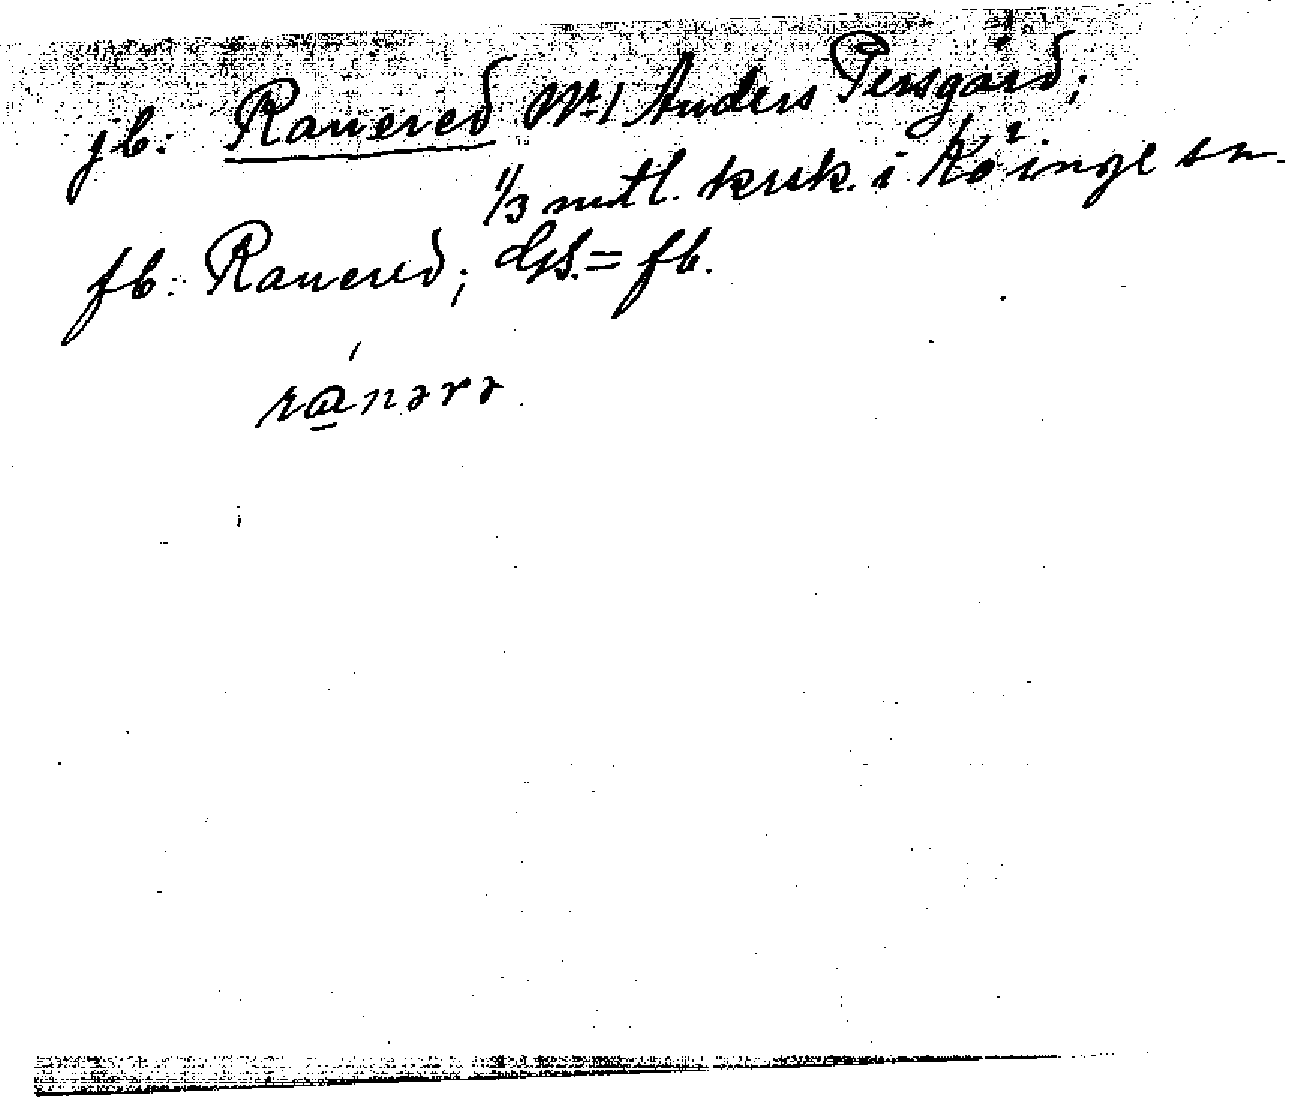 jb: Ranered No 1 Anders Persgård;
1/3 mtl. krsk. i Köinge sn.
fb: Ranered; GS. = fb.
ránərə